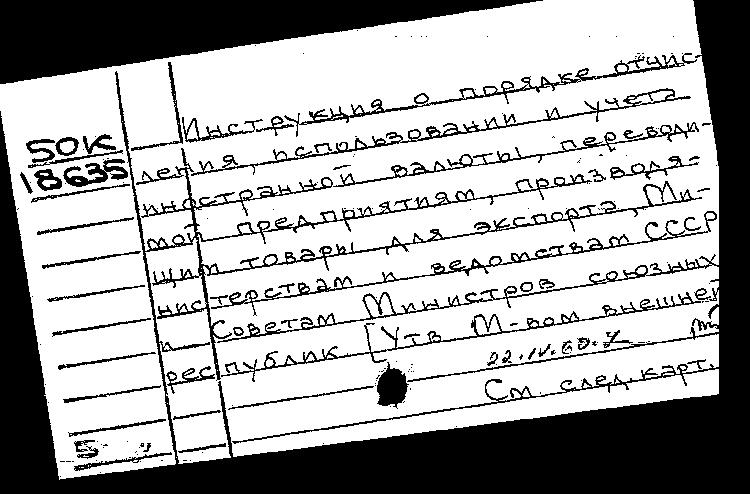 50К
18635
Инструкция о порядке отчис-
ления, использовании и учета
иностранной валюты, переводи-
мой предприятиям, производя-
щим товары для экспорта, Ми-
нистерствам и ведомствам СССР
и Советам Министров союзных
республик. [Утв М-вом внешней
22.IV.60
См. след. карт.
5